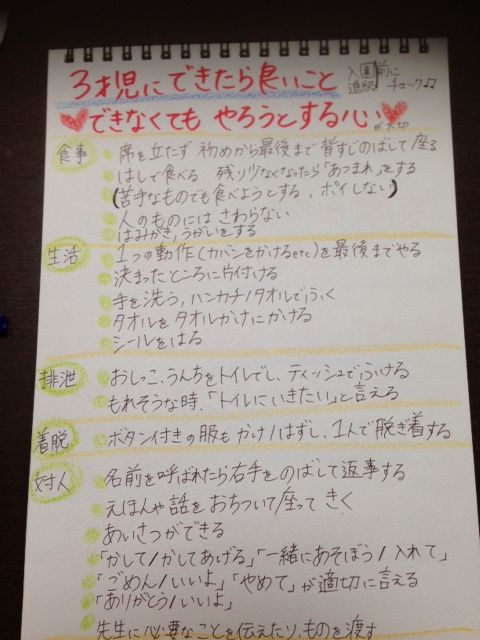 3才児にできたら良いこと
入園前に
進級
チェック♫
できなくても やろうとする心
が大切
食事
席を立たず 初めから最後まで 背すじのばして座る
はしで食べる 残り少なくなったら「あつまれ」をする
(苦手なものでも食べようとする、ポイしない)
人のものには さわらない
はみがき,うがいをする
生活
1つの動作(カバンをかけるetc)を最後までやる
決まったところに片付ける
手を洗う,ハンカチ/タオルでふく
タオルをタオルかけにかける
シールをはる
排泄
おしっこ、うんちをトイレでし、ティッシュでふける
もれそうな時、「トイレにいきたい」と言える
着脱
ボタン付きの服も かけ/はずし、1人で脱ぎ着する
対人
名前を呼ばれたら右手をのばして返事する
えほんや話を おちついて座って きく
あいさつができる
「かして/かしてあげる」「一緒にあそぼう/入れて」
「ごめん/いいよ」「やめて」が適切に言える
「ありがとう/いいよ」
先生に必要なことを伝えたり、ものを渡す